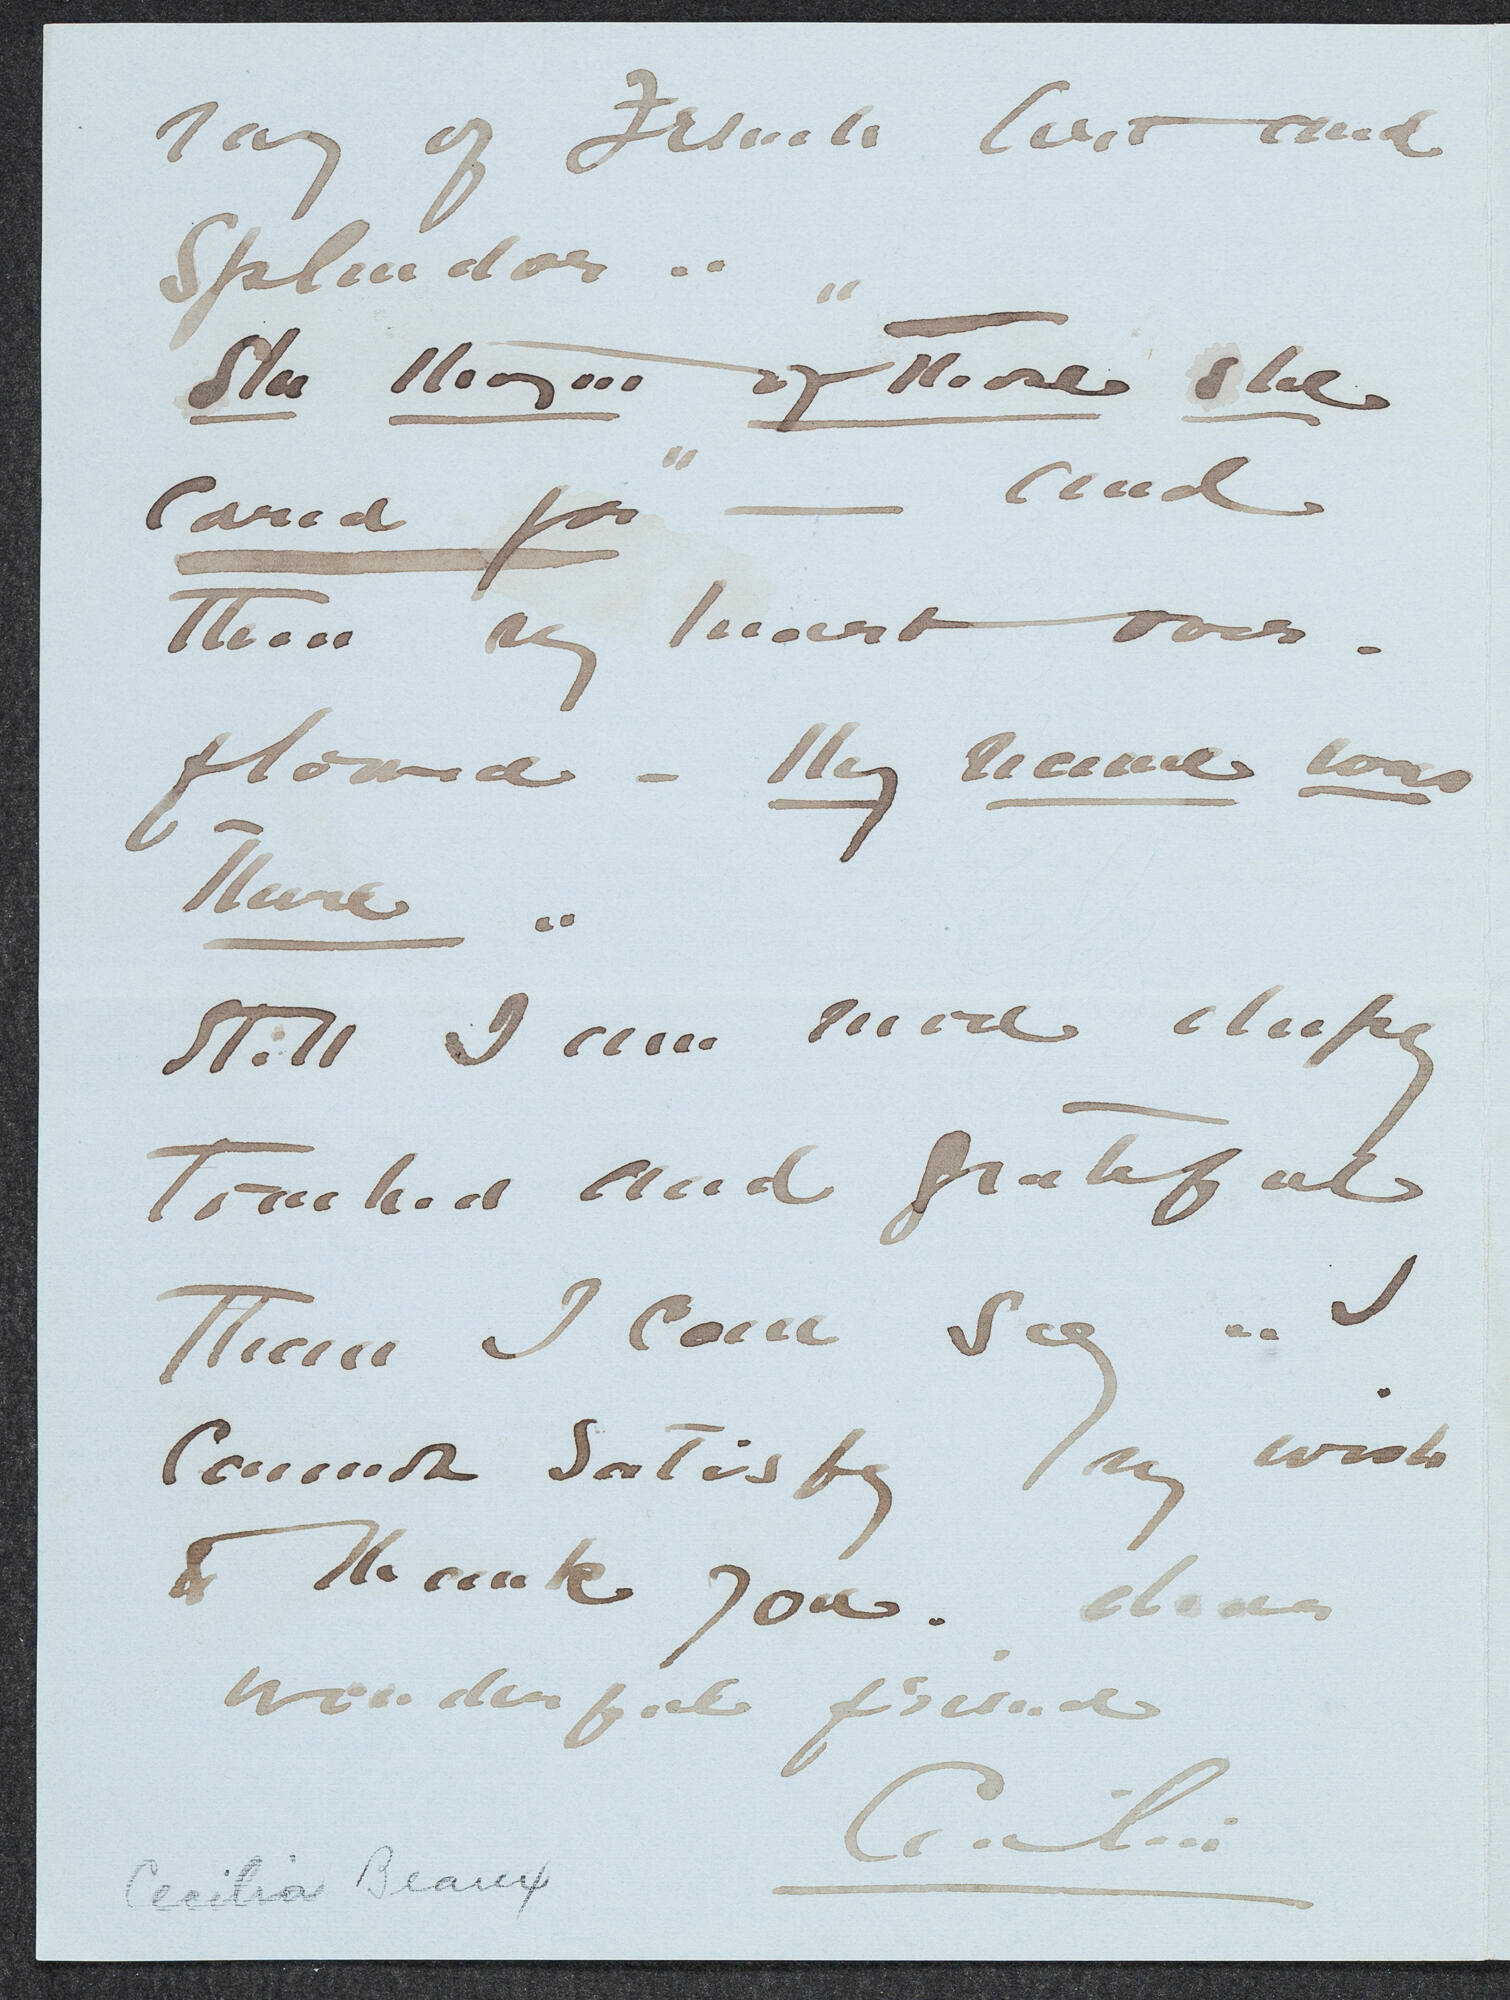 ray of French Art and
Splendor ..
"She thought of those she
cared for" — and
then my heart over-
flowed - My name was
there ..
Still I am more deeply
touched and grateful
than I can say .. I
cannot satisfy my wish
to thank you. dear
wonderful friend
Cecilia
Cecilia Beaux